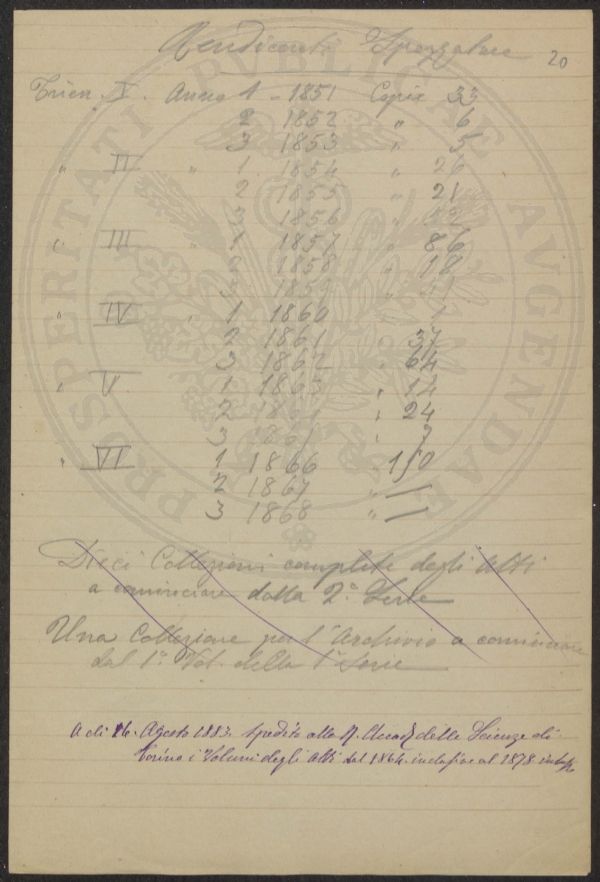 Rendiconti Spezzature
20
Trien. I. Anno 1 - 1851 Copie 33
2 1852 " 6
3 1853 " 5
" II " 1 1854 " 26
2 1855 " 21
3 1856 "
" III " 1 1857 " 86
2 1858 " 18
3 1859 " 11
" IV " 1 1860 " 1
2 1861 " 37
3 1862 " 64
" V 1 1863 " 12
2 " 24
3 "
" VI 1 1866 " 150
2 1867 " —
3 1868 " —
Dieci Collezioni complete degli Atti
a cominciare dalla 2a Serie
Una Collezione per l'Archivio a cominciare
dal 1o Vol. della 1a Serie
A dì 16. Agosto 1883. Spedito alla R. Accad delle Scienze di
Torino i Volumi degli Atti dal 1864. al 1878
PROSPERITATI PUBLICAE AUGENDAE